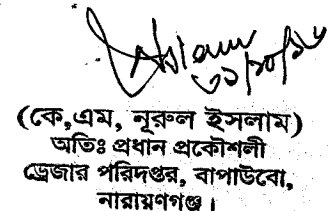 ৩১/১০/১৬
(কে,এম, নূরুল ইসলাম)
অতিঃ প্রধান প্রকৌশলী
ড্রেজার পরিদপ্তর, বাপাউবো,
নারায়ণগঞ্জ।